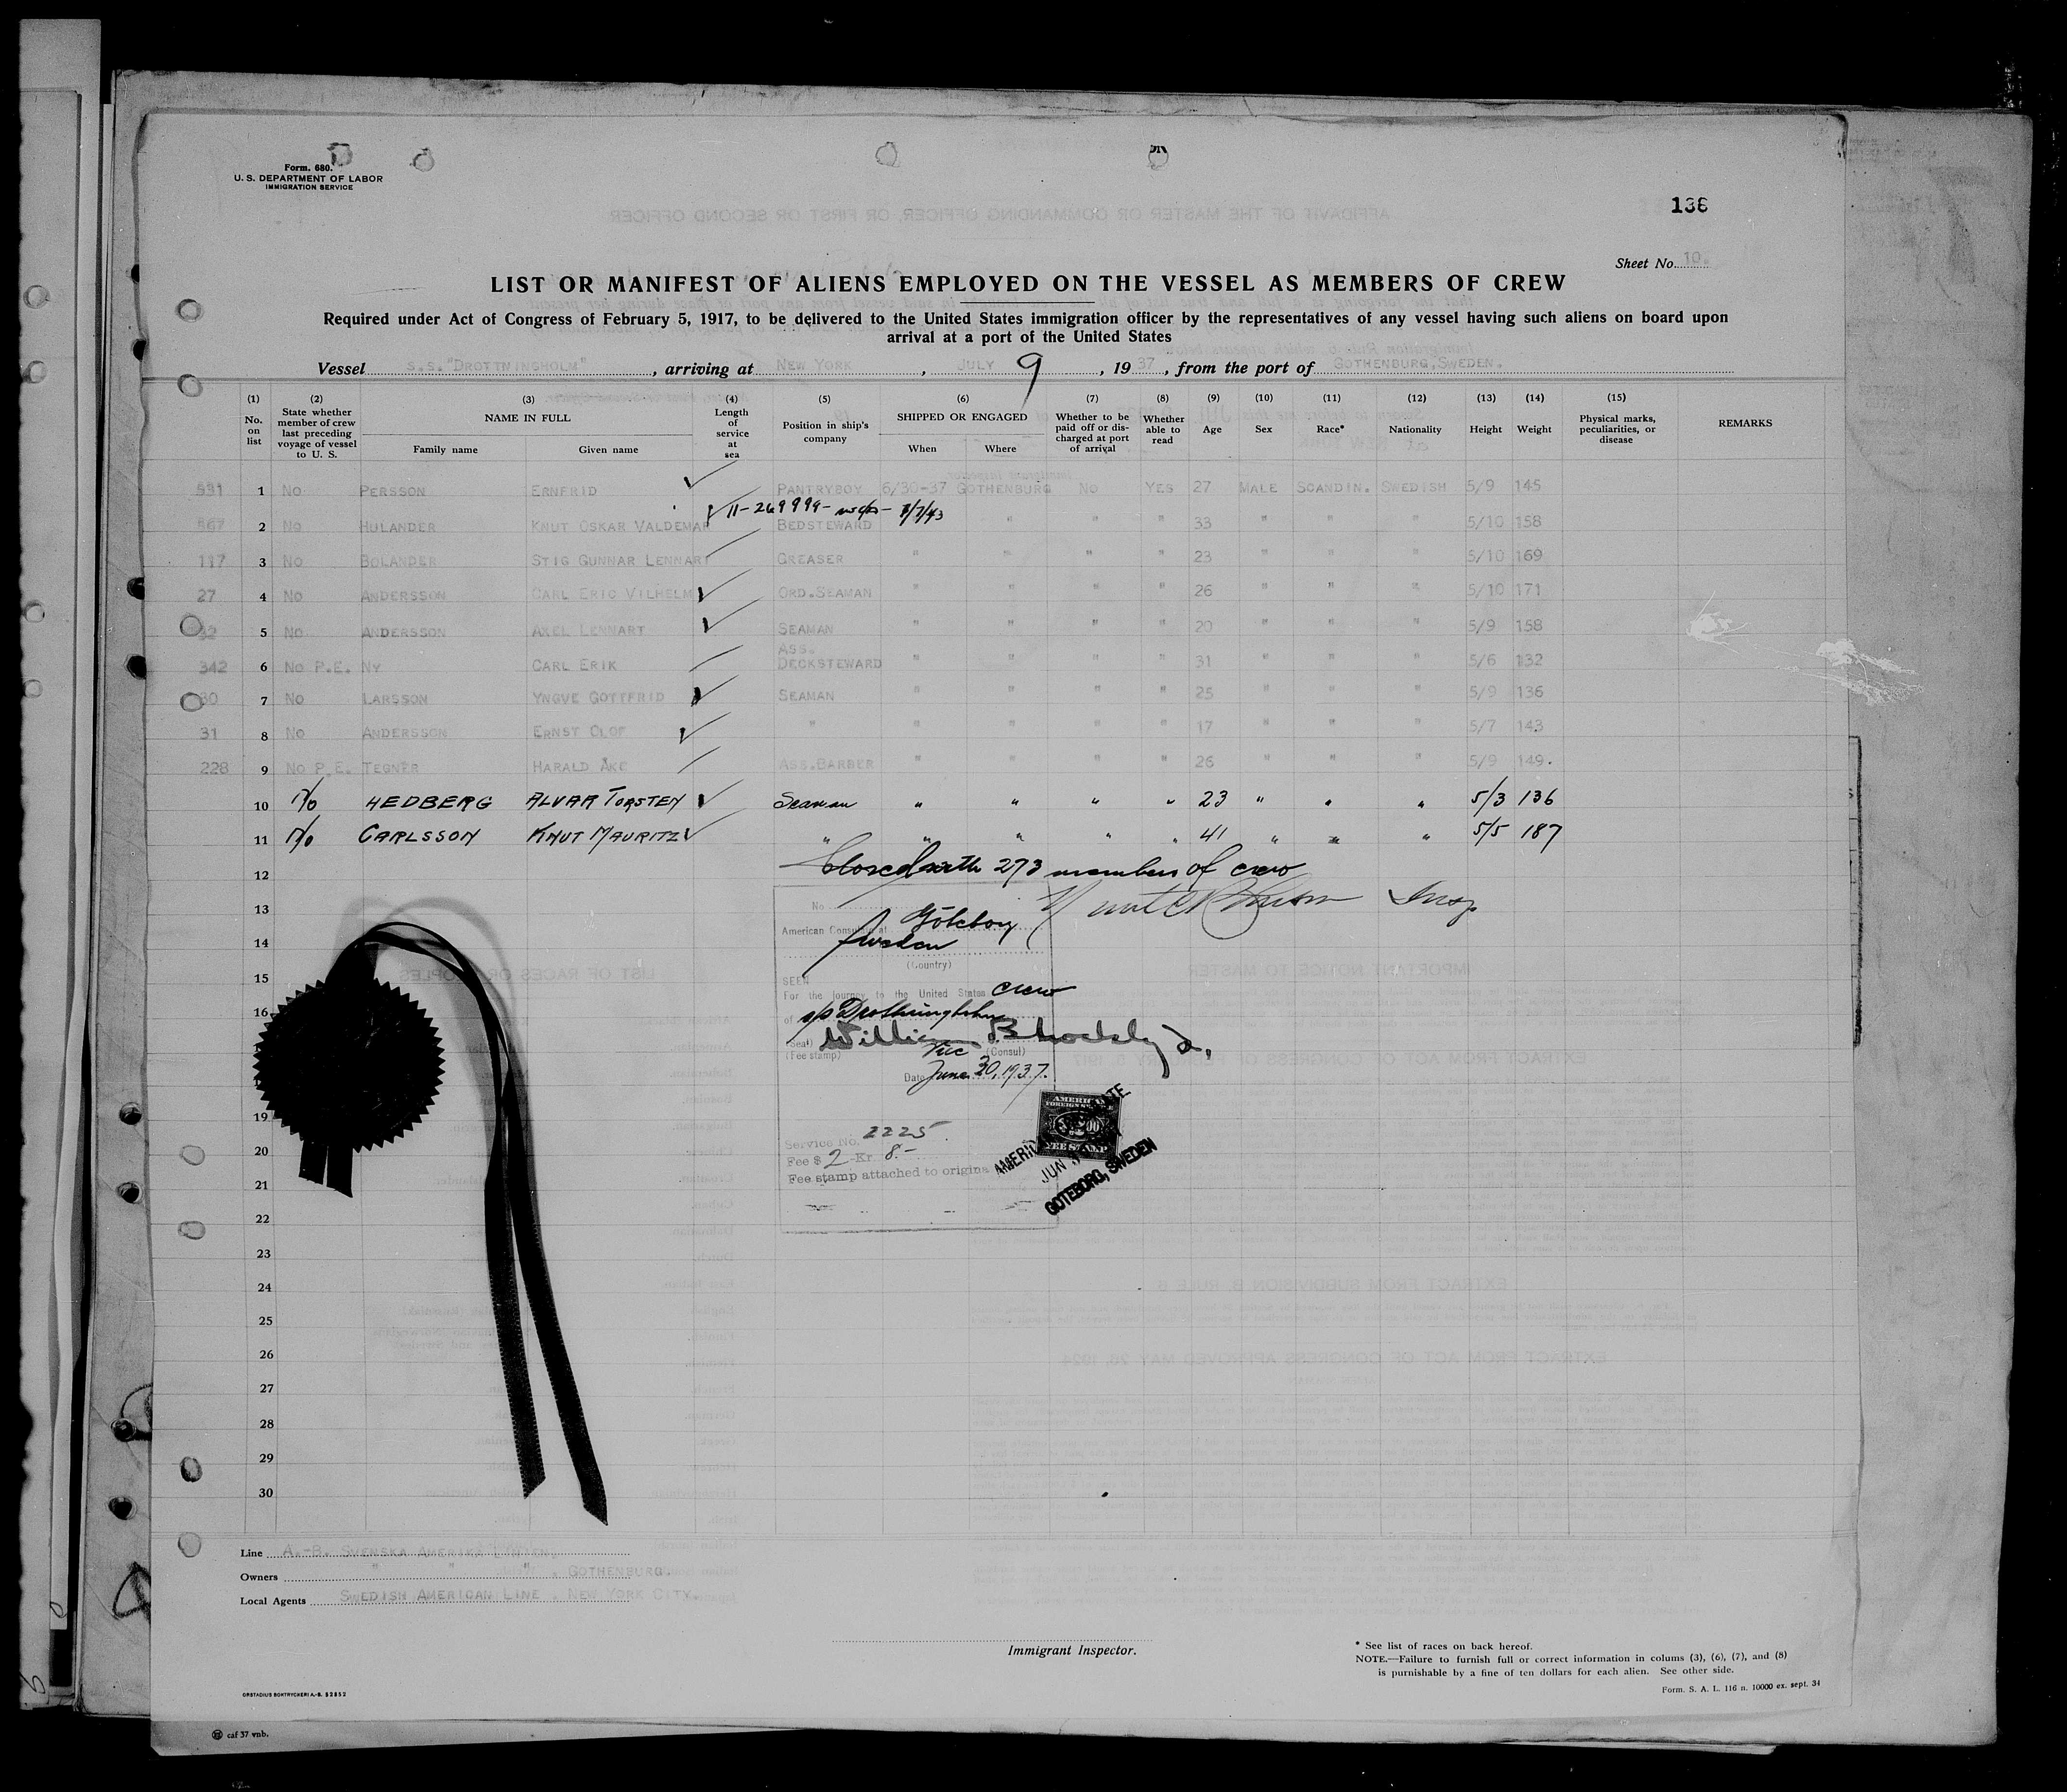 Form. 680.
U. S. DEPARTMENT OF LABOR
IMMIGRATION SERVICE
136
Sheet No. 10.
LIST OR MANIFEST OF ALIENS EMPLOYED ON THE VESSEL AS MEMBERS OF CREW
Required under Act of Congress of February 5, 1917, to be delivered to the United States immigration officer by the representatives of any vessel having such aliens on board upon
arrival at a port of the United States
Vessel S.S. "DROTTNINGHOLM", arriving at NEW YORK, JULY 9, 1937, from the port of GOTHENBURG, SWEDEN.
(1) (2) (3) (4) (5) (6) (7) (8) (9) (10) (11) (12) (13) (14) (15)
No. on list
State whether member of crew last preceding voyage of vessel to U. S.
NAME IN FULL
Family name
Given name
Length of service at sea
Position in ship's company
SHIPPED OR ENGAGED
When
Where
Whether to be paid off or discharged at port of arrival
Whether able to read
Age
Sex
Race*
Nationality
Height
Weight
Physical marks, peculiarities, or disease
REMARKS
531 1 No PERSSON ERNFRID PANTRYBOY 6/30-37 GOTHENBURG NO YES 27 MALE SCANDIN. SWEDISH 5/9 145
11-269999- 7/7/43
567 2 No HULANDER KNUT OSKAR VALDEMAR BEDSTEWARD " " " 33 " " " 5/10 158
117 3 No BOLANDER STIG GUNNAR LENNART GREASER " " " " 23 " " " 5/10 169
27 4 No ANDERSSON CARL ERIC VILHELM ORD.SEAMAN " " " " 26 " " " 5/10 171
32 5 No ANDERSSON AXEL LENNART SEAMAN " " " " 20 " " " 5/9 158
342 6 No P.E. NY CARL ERIK ASS. DECKSTEWARD " " " " 31 " " " 5/6 132
30 7 No LARSSON YNGVE GOTTFRID SEAMAN " " " " 25 " " " 5/9 136
31 8 No ANDERSSON ERNST OLOF " " " " " 17 " " " 5/7 143
228 9 No P.E. TEGNÉR HARALD ÅKE ASS.BARBER " " " " 26 " " " 5/9 149.
10 No HEDBERG ALVAR TORSTEN Seaman " " " " 23 " " " 5/3 136
11 No CARLSSON KNUT MAURITZ " " " " " 41 " " " 5/5 187
12 Closed with 273 members of crew
13 Insp
14
15
16
19
20
21
22
23
24
25
26
27
28
29
30
No.
American Consulate at Göteborg
Sweden
(Country)
SEEN
For the journey to the United States crew
of s/s Drottningholm
William
(Seal)
(Fee stamp)
Vice (Consul)
Date June 30, 1937.
Service No. 2225
Fee $ 2 Kr. 8.-
Fee stamp attached to origina
AMERICAN
FOREIGN SERVICE
FEE STAMP
JUN
GOTEBORG, SWEDEN
Line A.-B. SVENSKA AMERIKA LINIEN.
Owners " " " , GOTHENBURG.
Local Agents SWEDISH AMERICAN LINE, NEW YORK CITY.
Immigrant Inspector.
* See list of races on back hereof.
NOTE.—Failure to furnish full or correct information in colums (3), (6), (7), and (8)
is purnishable by a fine of ten dollars for each alien. See other side.
Form. S. A. L. 116 n. 10000 ex. sept. 34
ORSTADIUS BOKTRYCKERI A.-B. 52852
caf 37 vnb.